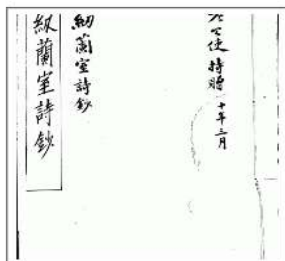 公使持贈 十年三月
紉蘭室詩鈔
紉蘭室詩鈔